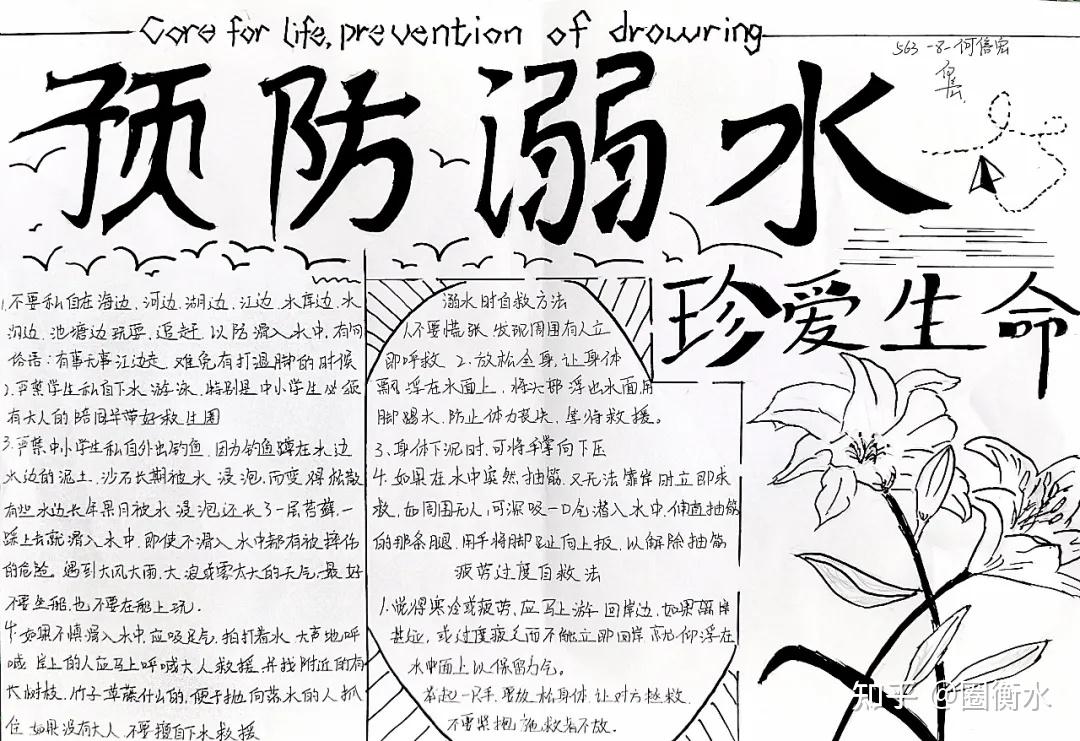 Core for life, prevention of drowring
563-8-何倍宏
预防溺水
珍爱生命
1.不要私自在海边、河边、湖边、江边、水库边、水
沟边、池塘边玩耍、追赶,以防滑入水中,有句
俗语:有事无事江边走,难免有打湿脚的时候
2.严禁学生私自下水游泳,特别是中小学生必须
有大人的陪同并带好救生圈
3.严禁中小学生私自外出钓鱼,因为钓鱼蹲在水边
水边的泥土、沙石长期被水浸泡,而变得松散
有些水边长年累月被水浸泡还长了一层苔藓,一
踩上去就滑入水中,即使不滑入水中都有被摔伤
的危险。遇到大风大雨、大浪或雾太大的天气,最好
不要坐船,也不要在船上玩.
4.如果不慎滑入水中,应吸足气,拍打着水,大声地呼
喊,岸上的人应马上呼喊大人救援,并找附近的有
长树枝、竹子、草藤什么的,便于抛向落水的人抓
住,如果没有大人,不要擅自下水救援
溺水时自救方法
1.不要慌张,发现周围有人立
即呼救 2.放松全身,让身体
飘浮在水面上,将头部浮出水面,用
脚踢水,防止体力丧失,等待救援。
3、身体下沉时,可将手掌向下压
4.如果在水中突然抽筋,又无法靠岸时,立即求
救,如周围无人,可深吸一口气潜入水中,伸直抽筋
的那条腿,用手将脚趾向上扳,以解除抽筋
疲劳过度自救法
1.觉得寒冷或疲劳,应马上游回岸边,如果离岸
甚远,或过度疲乏而不能立即回岸,就仰浮在
水中面上以保留力气。
举起一只手,放松身体,让对方拯救,
不要紧抱施救者不放.
知乎 @圈衡水